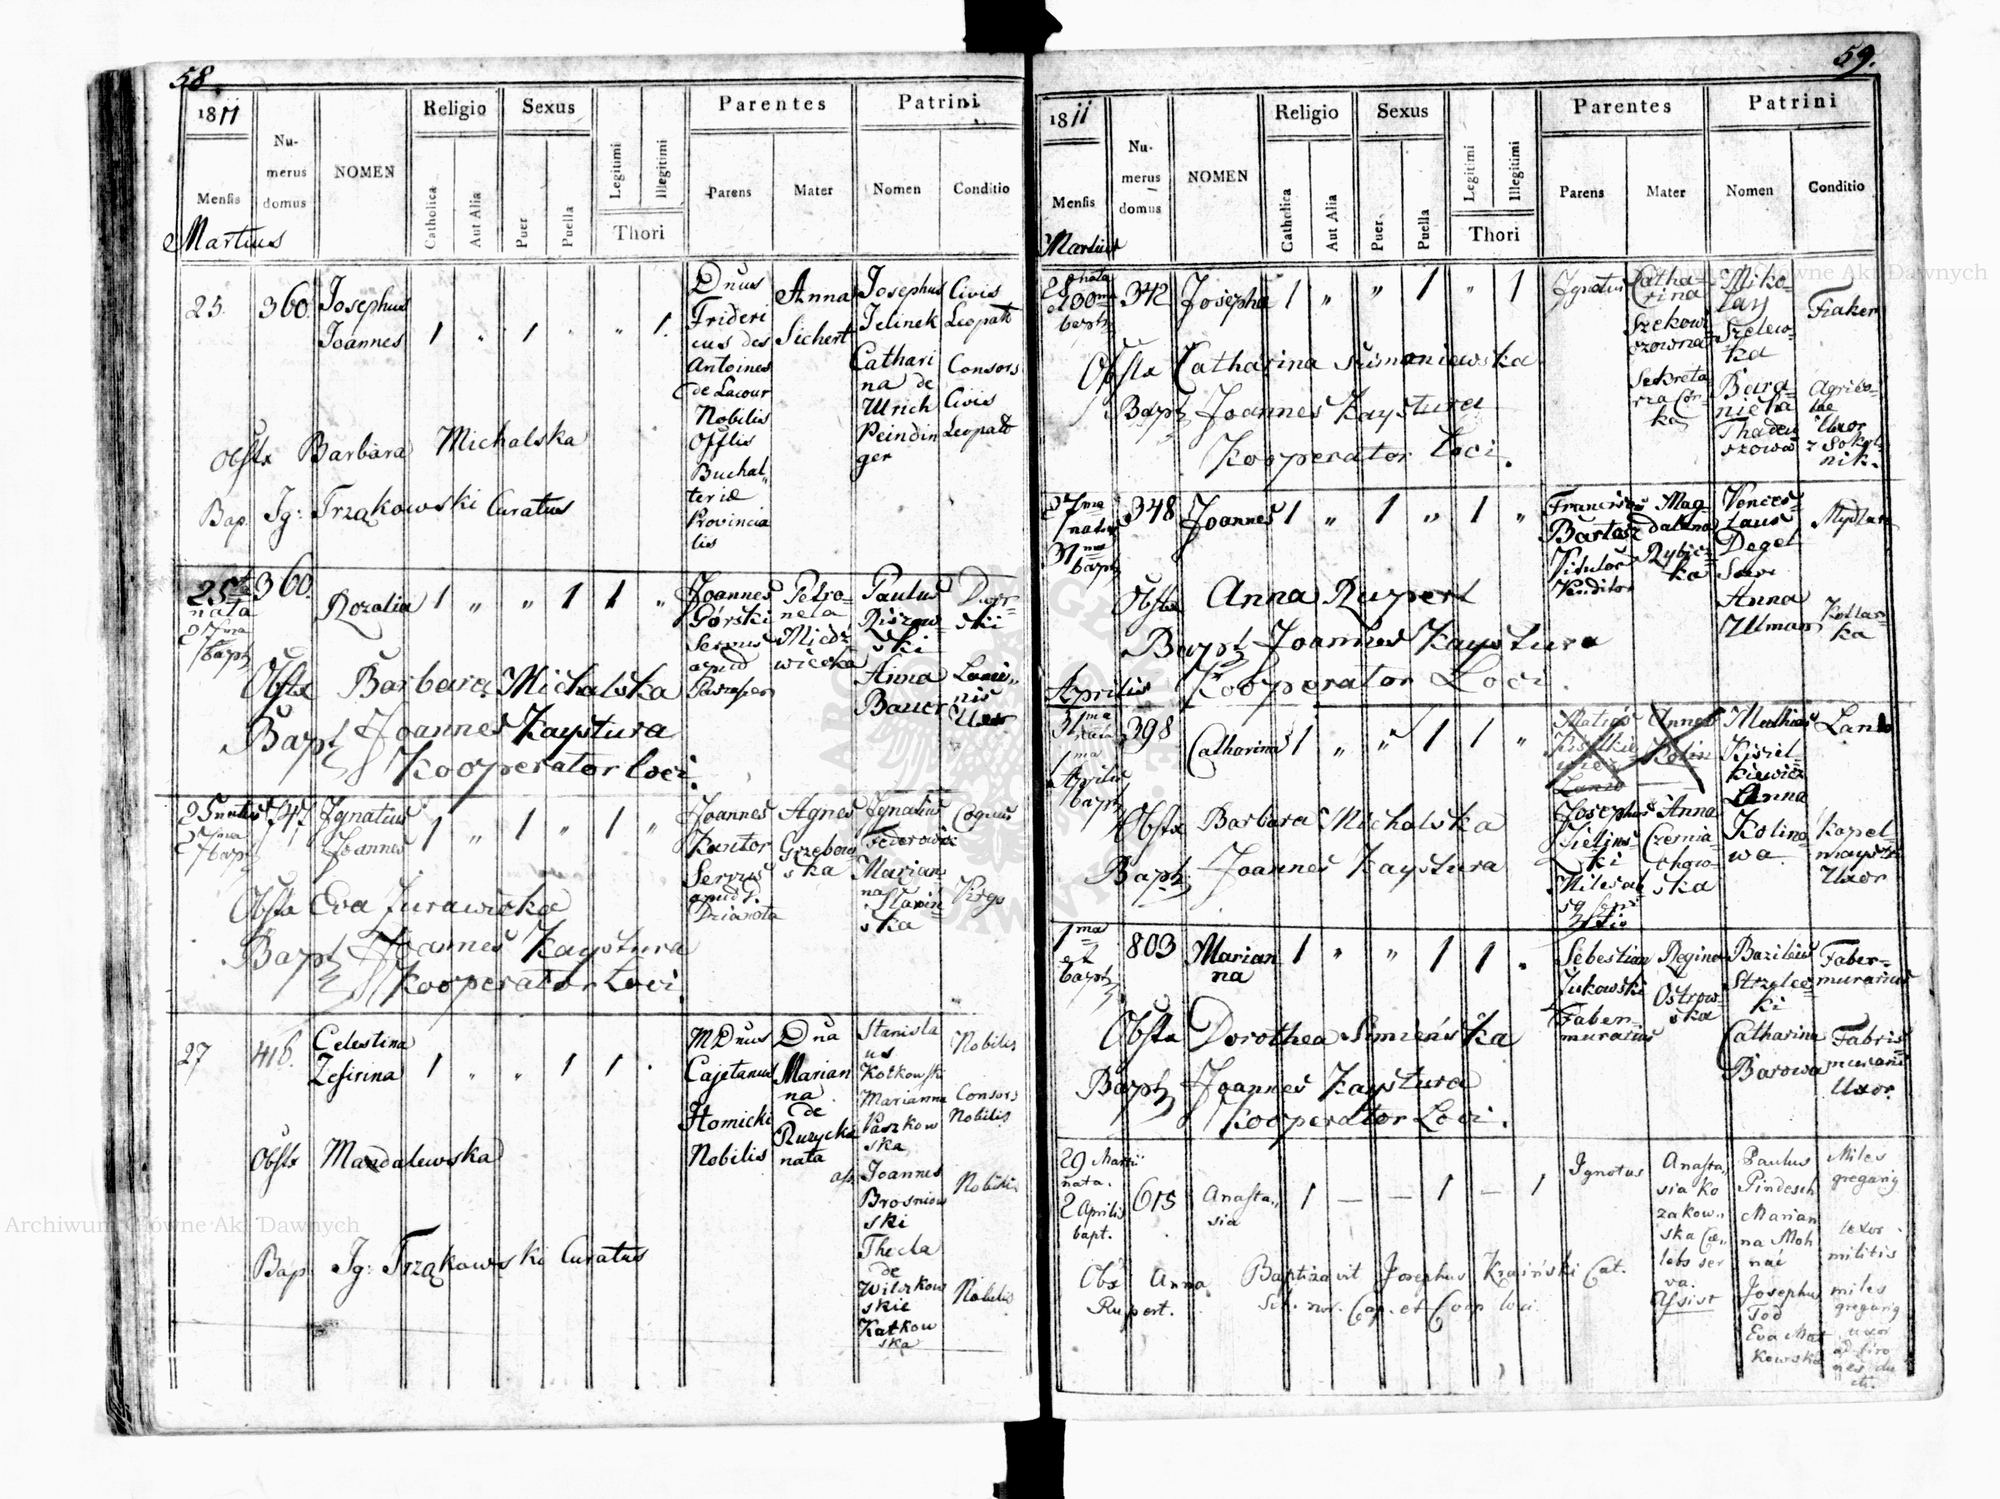 58.
1811
Numerus domus
NOMEN
Religio
Sexus
Legitimi
Illegitimi
Thori
Parentes
Patrini
Mensis
Catholica
Aut Alia
Puer
Puella
Parens
Mater
Nomen
Conditio
Martius
23.
360.
Josephus
Joannes
1
1
1.
Dnus
Frideri
cus des
Antoines
de Lacour
Nobilis
Offlis
Buchal„
teriæ
Provincia
lis
Anna
Sichert
Josephus
Jelinek
Cathari
na de
Ulrich
Peindin
ger
Civis
Leopol
Consors
Civis
Leopol
Obstx Barbara Michalska
Bap. Ig: Trząkowski Curatus
25ta
nata
27ma
bapt
360.
Rozalia
1 „ „ 1 1 „
Joannes
Górski
Servus
apud
Petro-
nela
Miedź
wiecka
Paulus
Riszow-
ski
Anna
Bauer
Dwor-
ski
Lanio„
nis
Uxor
Obstx Barbara Michalska
Bapt Joannes Kaystura
Kooperator loci.
25 natus
27ma
bapt
Ignatius
Joannes
1 „ 1 „ 1 „
Joannes
Kantor
Servus
apud D.
Dzianota
Agnes
Grzebow
ska
Ignatius
Fedorowicz
Marian
na Slavin
ska
Coquus
Obstx Eva Zurawicka
Bapt Joannes Kaystura
Kooperator Loci.
27
416.
Celestina
Zefirina
1 „ „ 1 1 .
MDnus
Cajetanus
Homicki
Nobilis
Dna
Marian
na
de
Ruzycka
nata
Stanisla
us
Kotkowski
Marianna
Paszkow
ska
ass. Joannes
Brosniow
ski
Thecla
de
Wilczkow
skie
Katkow
ska
Nobilis
Consors
Nobilis
Nobilis
Nobilis
Obstx Mandalewska
Bap. Ig: Trząkowski Curatus
59.
1811
Numerus domus
NOMEN
Religio
Sexus
Legitimi
Illegitimi
Thori
Parentes
Patrini
Mensis
Catholica
Aut Alia
Puer
Puella
Parens
Mater
Nomen
Conditio
Martius
nata
30ma
bapt
342
Josepha
1 „ „ 1 „ 1
Ignotus
Catha-
rina
Szekow-
szowna
Sekreta-
rza Cór-
ka
Miko-
lay
Szelew-
ka
Bara-
niecka
Thadeu
szowa
Fiaker
Agrico-
lae
Uxor
z Sokol-
nik.
Obstx Catharina Szimaniewska
Bapt Joannes Kaystura
Kooperator Loci.
27ma
natus
31ma
bapt
348
Joannes
1 „ 1 „ 1 „
Franciscus
Bartosz
Mag
dalena
Rybic-
ka
Vences-
laus
Degel
Anna
Ulman
Mydlarz
Kotlar-
ka
Obstx Anna Rupert
Bapt Joannes Kaystura
Kooperator Loci.
Aprilis
31ma
1ma
Aprilis
bapt
398
Catharina
1 „ „ 1 1 „
Josephus
Zielins
ki
Anna
Czernia-
chow-
ska
Mathias
Kisiel-
kiewicz
Anna
Kolino-
wa
Lanio
Kapel-
mayst-
Uxor
Obstx Barbara Michalska
Bapt. Joannes Kaystura
1ma
et
bapt
803
Marian
na
1 „ „ 1 1 „
Sebestian
Zukowski
Faber-
murarius
Regina
Ostrow-
ska
Bazilius
Strzelec-
ki
Catharina
Barowa
Faber-
murarius
Fabris
murarii
Uxor.
Obstx Dorothea Simińska
Bapt Joannes Kaystura
Kooperator Loci.
29 Martii
nata.
2 Aprilis
bapt.
615
Anasta„
sia
1 — — 1 — 1
Ignotus
Anasta„
sia Ko
zakow„
ska Cæ„
lebs ser
va.
Assist
Paulus
Pindesch
Marian
na Moh
nai
Josephus
Tod
Eva Mat
kowska
Miles
gregarig
uxor
militis
miles
gregarig
uxor
Obx Anna Baptizavit Josephus Kraiński Cat.
Rupert. Sch. nor. Cap. et Coop loci.
Archiwum Główne Akt Dawnych
Archiwum Główne Akt Dawnych